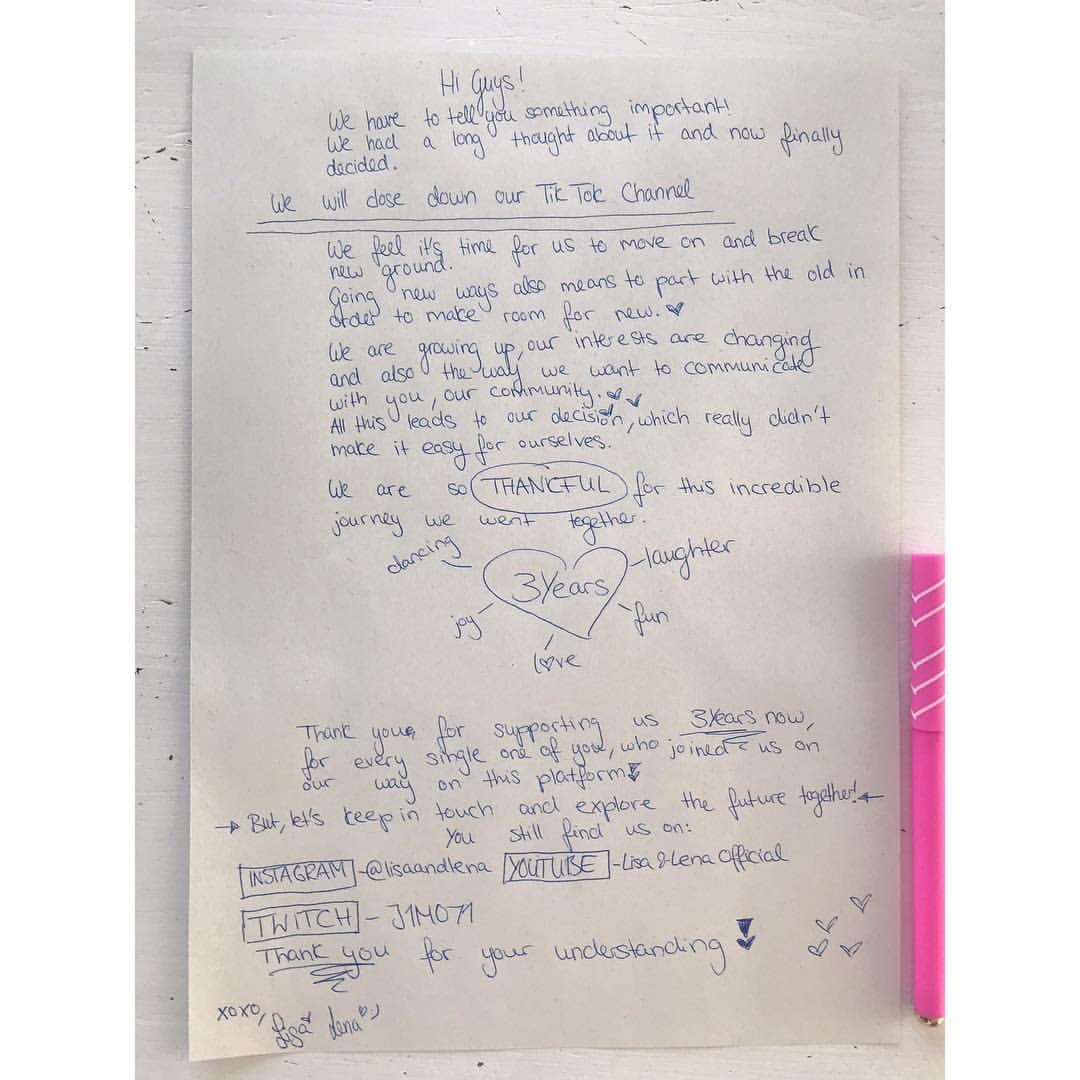 Hi Guys!
We have to tell you something important!
We had a long thought about it and now finally
decided.
We will close down our Tik Tok Channel
We feel it's time for us to move on and break
new ground.
Going new ways also means to part with the old in
order to make room for new.
We are growing up, our interests are changing
and also the way we want to communicate
with you, our community.
All this leads to our decision, which really didn't
make it easy for ourselves.
We are so THANKFUL for this incredible
journey we went together.
dancing
laughter
3 Years
joy
fun
love
Thank you for supporting us 3 Years now,
for every single one of you, who joined us on
our way on this platform!
→ But, let's keep in touch and explore the future together! ←
You still find us on:
INSTAGRAM - @lisaandlena YOUTUBE - Lisa & Lena Official
TWITCH - J1MO71
Thank you for your understanding
xoxo, Lisa Lena :)